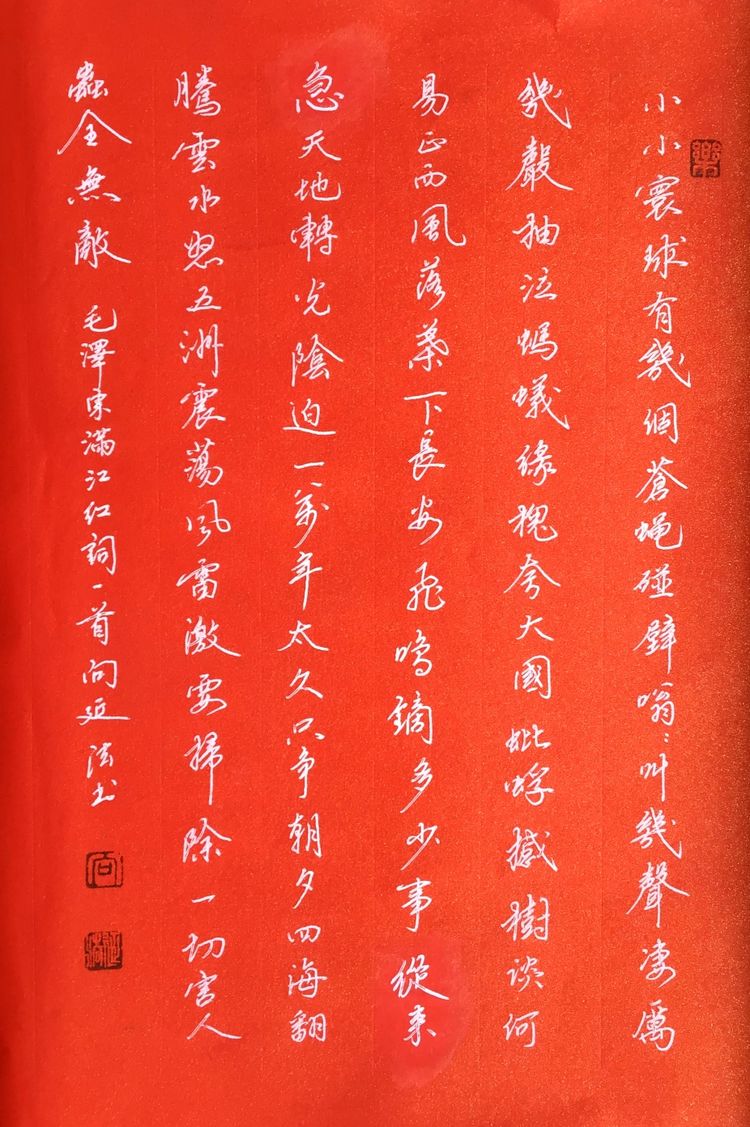 小小寰球有幾個蒼蝇碰壁嗡〻叫幾聲凄厲
幾聲抽泣螞蟻緣槐夸大國蚍蜉撼樹談何
易正西風落葉下長安飛鳴鏑多少事從來
急天地轉光陰迫一萬年太久只爭朝夕四海翻
騰雲水怒五洲震蕩風雷激要掃除一切害人
蟲全無敵 毛澤東滿江紅詞一首向延法书
向